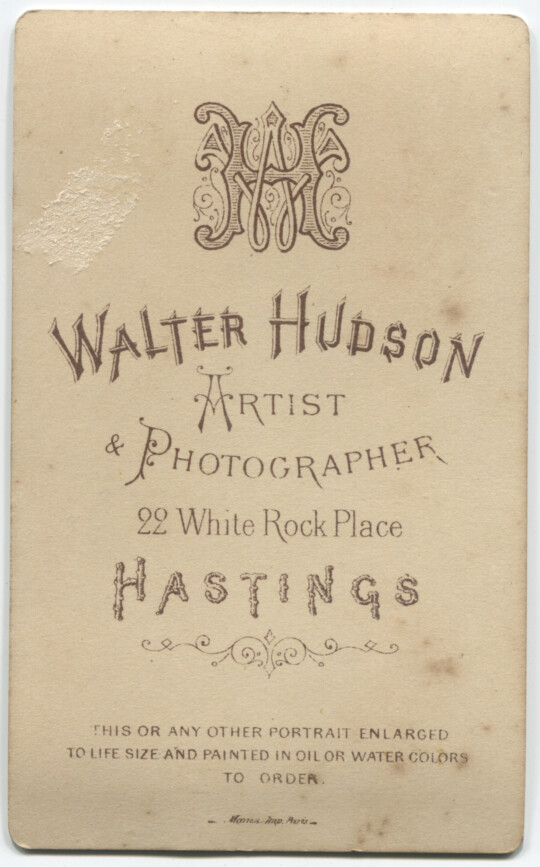 WALTER HUDSON
ARTIST
& PHOTOGRAPHER
22 White Rock Place
HASTINGS
THIS OR ANY OTHER PORTRAIT ENLARGED
TO LIFE SIZE AND PAINTED IN OIL OR WATER COLORS
TO ORDER.
Imp. Paris